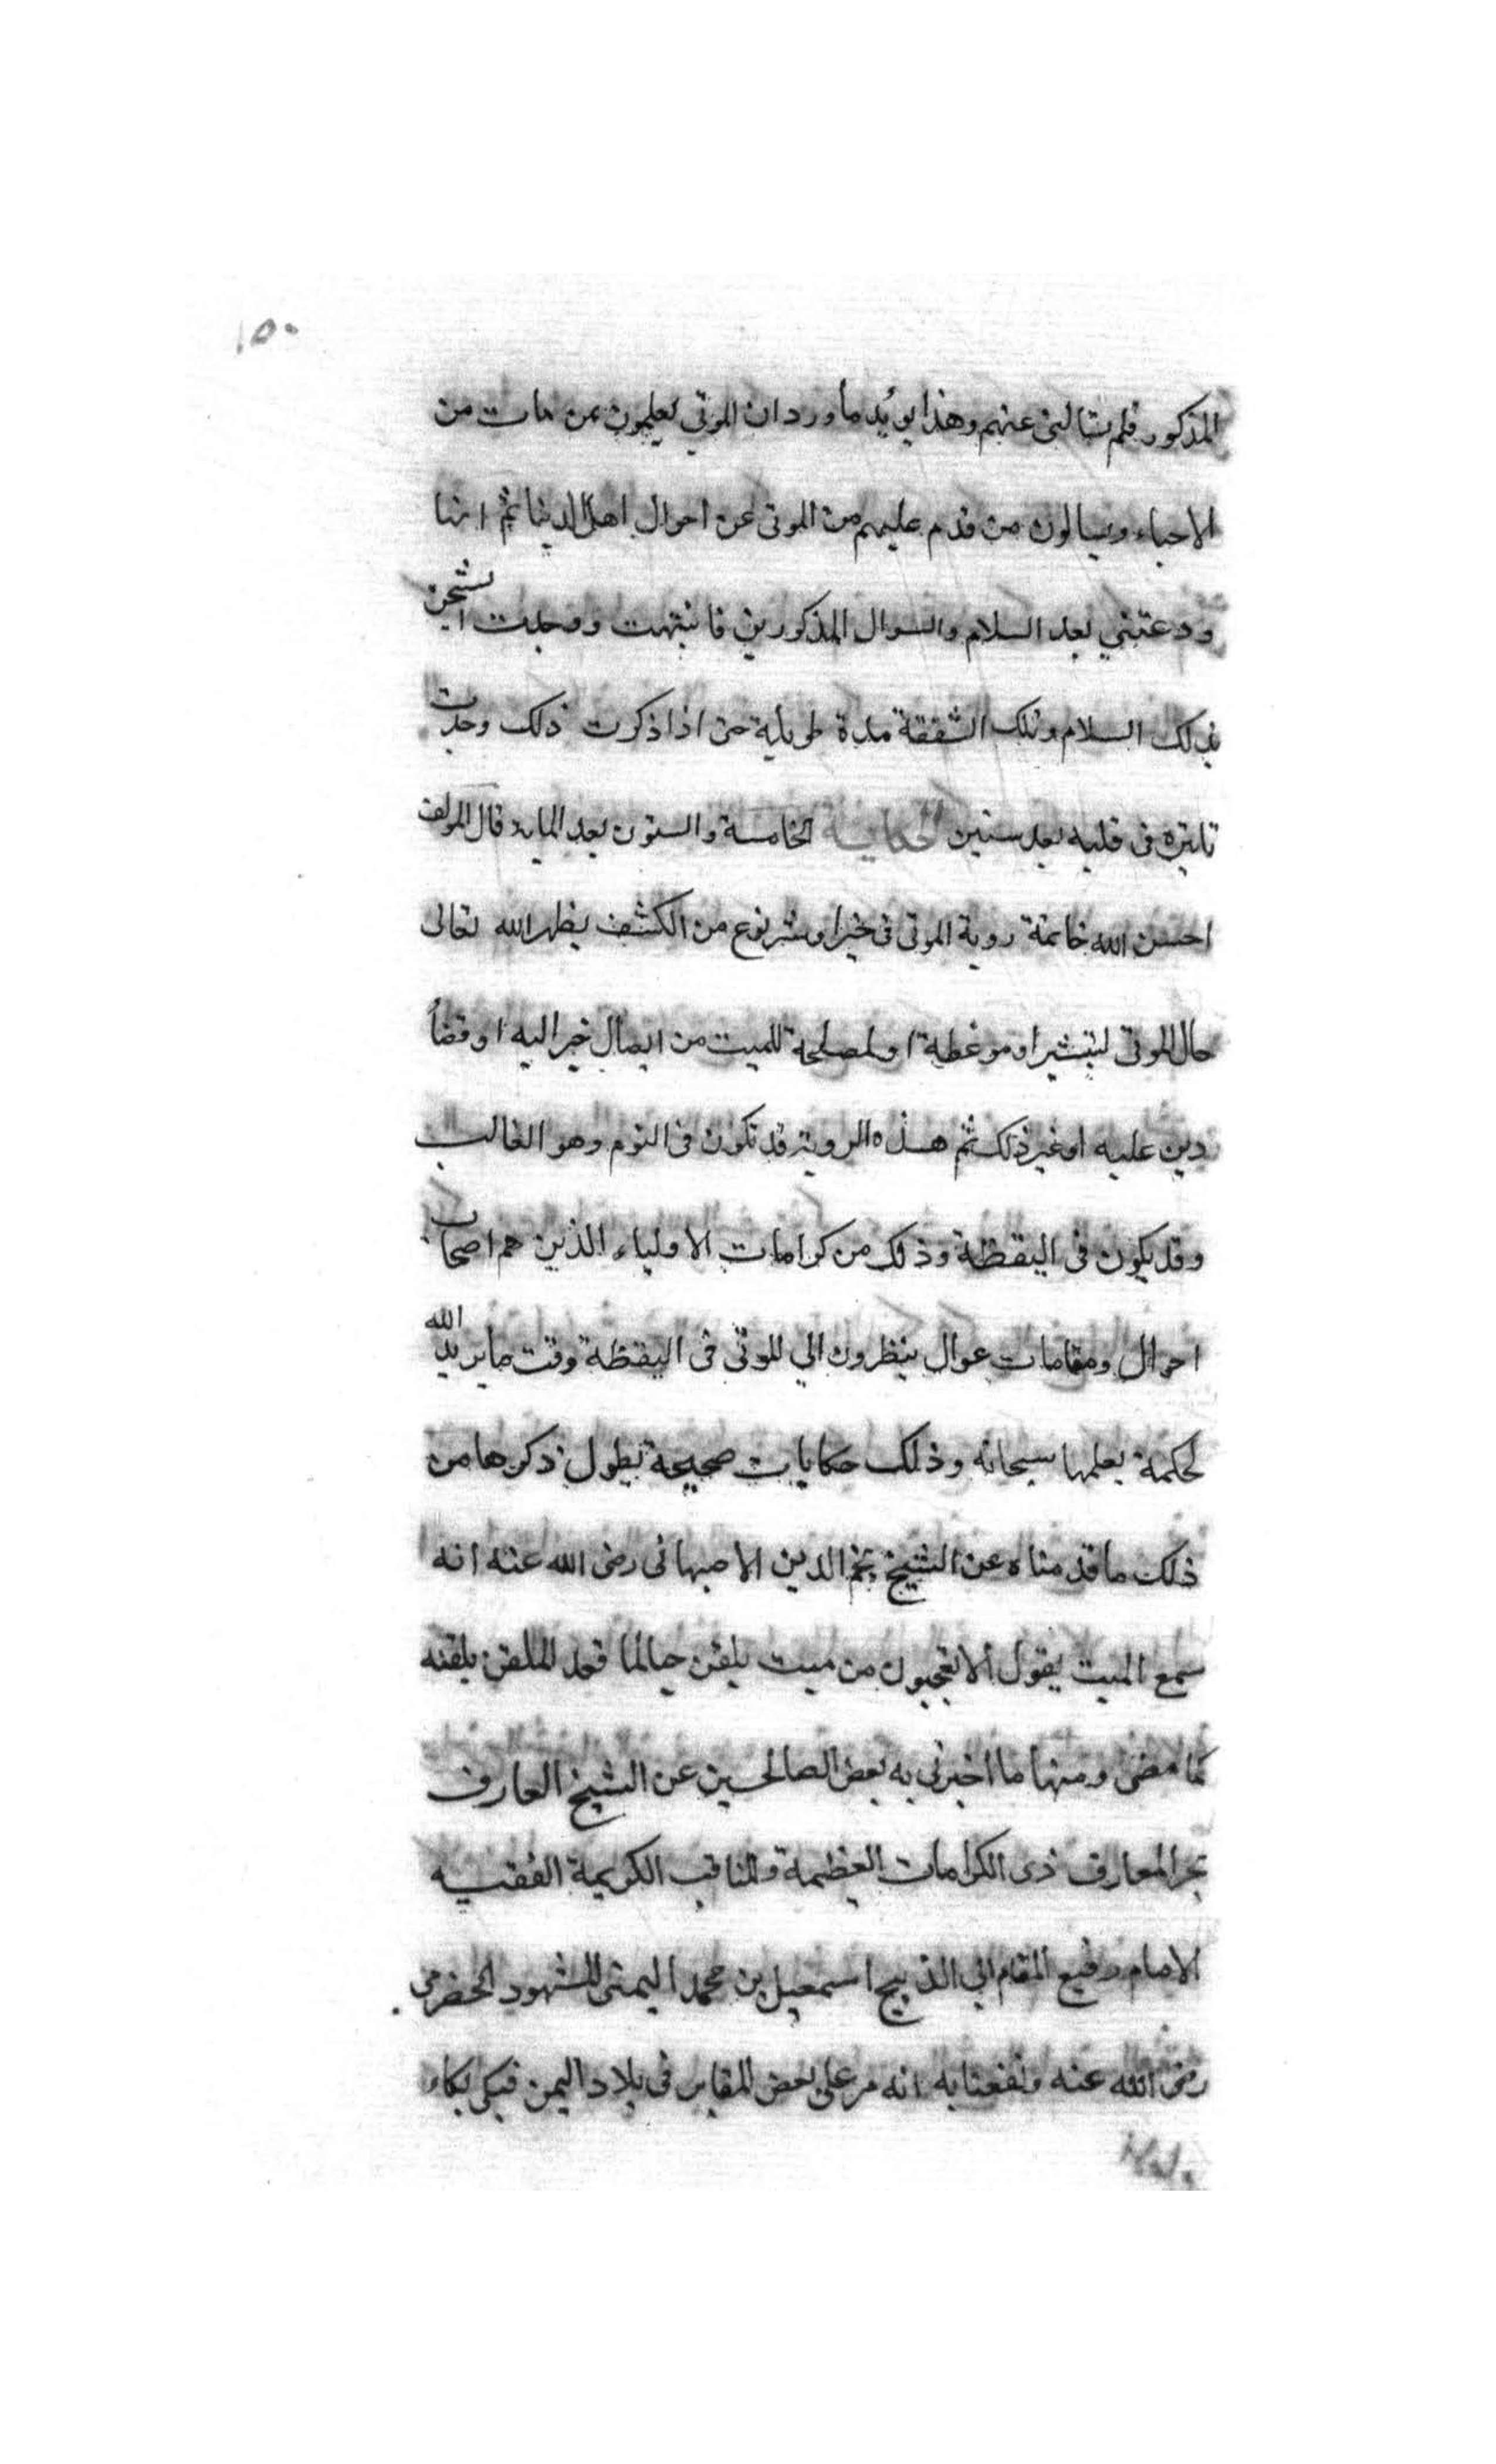 ١٥٠
المذكور فلم تسالنى عنهم وهذا يويد ما ورد ان الموتي يعلمون بمن مات من
الاحياء ويسالون من قدم عليهم من الموتى عن احوال اهل الدنيا ثم انها
ودعتني بعد السلام والسوال المذكورين فانتبهت ووجدت
بذلك السلام وتلك الشفقة مدة طويلة حتى اذا ذكرت ذلك وجدت
تاثيره فى قلبه بعد سنين الحكاية الخامسة والستون بعد المايه قال المولف
احسن الله خاتمة روية الموتى فى خير او شر نوع من الكشف يظهر الله تعالى
حال الموتى لتبشير او موعظة او لمصلحة للميت من ايصال خير اليه او قضاء
دين عليه او غير ذلك ثم هذه الروية قد تكون فى النوم وهو الغالب
وقد يكون فى اليقظة وذلك من كرامات الاولياء الذين هم اصحاب
احوال ومقامات عوال ينظرون الي الموتى فى اليقظة وقت ما يريد الله
لحكمة يعلمها سبحانه وذلك حكايات صحيحة يطول ذكرها من
ذلك ما قدمناه عن الشيخ نجم الدين الاصبهانى رضى الله عنه انه
سمع الميت يقول الا تعجبون من ميت يلقن حيا لما قعد الملقن يلقنه
كما مضى ومنها ما اخبرني به بعض الصالحين عن الشيخ العارف
بحر المعارف ذى الكرامات العظيمة والمناقب الكريمة الفقيه
الامام رفيع المقام ابي الذبيح اسمعيل بن محمد اليمنى المشهور الحضرمى
رضى الله عنه ونفعنا به انه مر على بعض المقابر فى بلاد اليمن فبكى بكاء